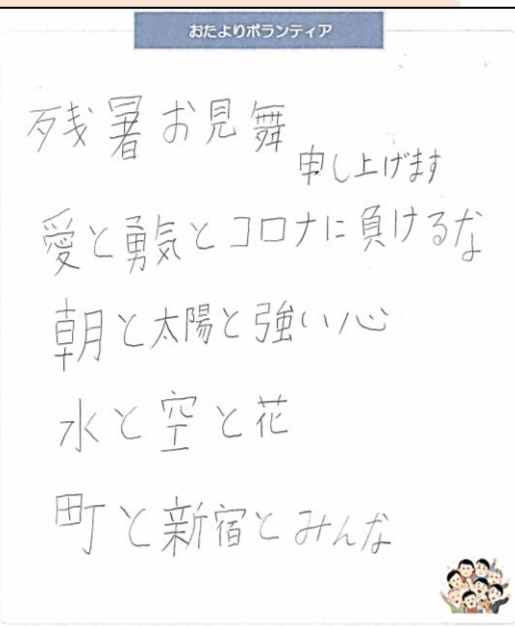 おたよりボランティア
残暑お見舞
申し上げます
愛と勇気とコロナに負けるな
朝と太陽と強い心
水と空と花
町と新宿とみんな